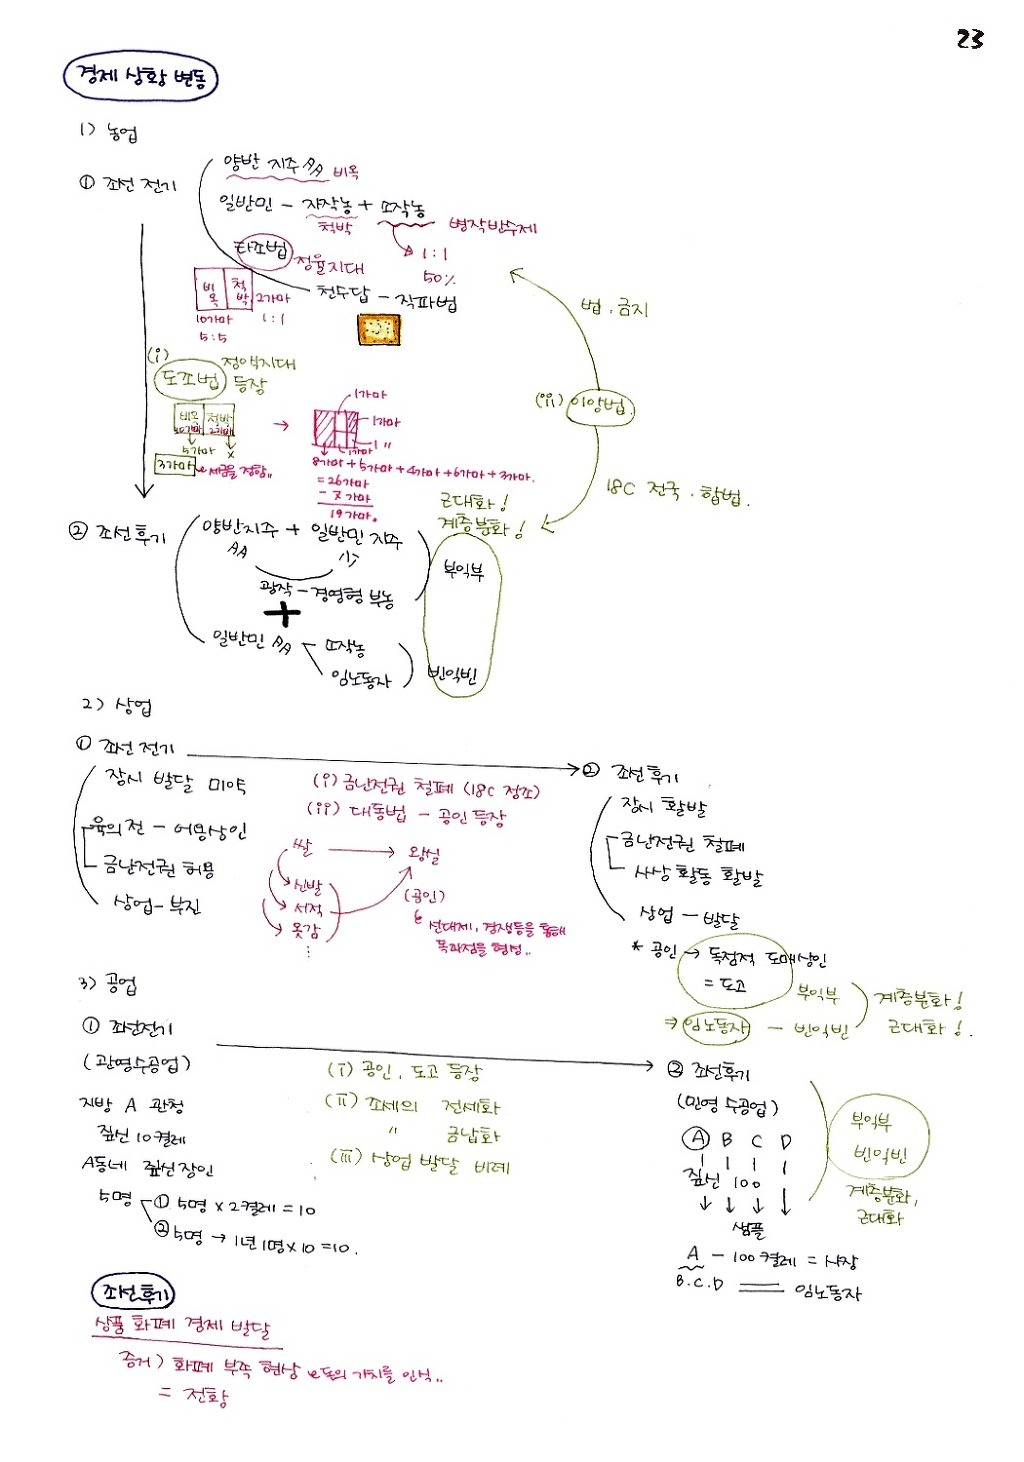 23
경제 상황 변동
1) 농업
① 조선 전기
양반 지주 AA 비옥
일반민 - 자작농 + 소작농
척박
병작반수제
1:1
50%
타조법
정율지대
천수답 - 직파법
비옥 척박 2가마
10가마 1:1
5:5
법. 금지
(i) 정액지대
도조법 등장
비옥 척박
10가마 2가마
5가마 x
3가마 세금을 정함..
→
1가마
1가마
1 "
1가마
8가마+5가마+4가마+6가마+3가마.
= 26가마
- 7가마
19가마.
(ii) 이앙법.
18C 전국. 합법.
근대화!
계층분화!
② 조선후기
양반지주 + 일반민 지주
AA 小
광작 - 경영형 부농
+
일반민 AA
소작농
임노동자
부익부
빈익빈
2) 상업
① 조선 전기
장시 발달 미약
육의전 - 어용상인
금난전권 허용
상업 - 부진
(i) 금난전권 철폐 (18C 정조)
(ii) 대동법 - 공인 등장
쌀 → 왕실
신발
서적
옷감
⋮
(공인)
선대제, 경쟁등을 통해
독과점을 형성..
② 조선후기
장시 활발
금난전권 철폐
사상 활동 활발
상업 - 발달
* 공인 → 독점적 도매상인
= 도고 부익부
⇒ 임노동자 - 빈익빈
계층분화!
근대화!.
3) 공업
① 조선전기
(관영수공업)
지방 A 관청
짚신 10켤레
A동네 짚신장인
5명
① 5명 x 2켤레 = 10
② 5명 → 1년 1명 x 10 = 10.
(i) 공인, 도고 등장
(ii) 조세의 전세화
" 금납화
(iii) 상업 발달 비례
② 조선후기
(민영 수공업)
A B C D
짚신 100
샘플
A - 100켤레 = 사장
B.C.D = 임노동자
부익부
빈익빈
계층분화,
근대화
조선후기
상품 화폐 경제 발달
증거) 화폐 부족 현상 돈의 가치를 인식..
= 전황